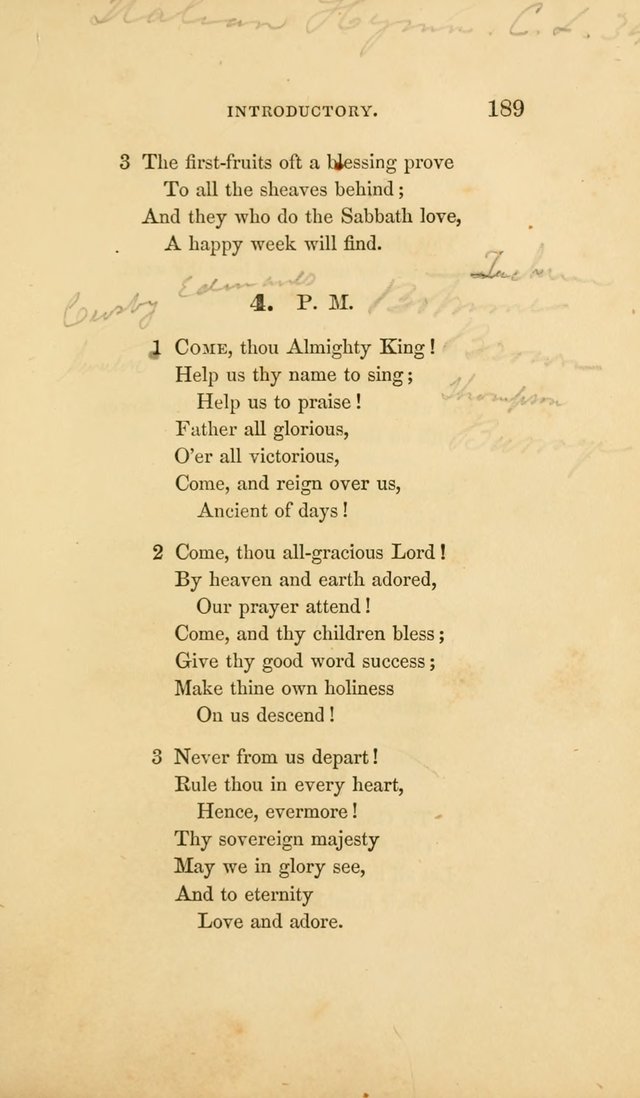 Italian Hymn. C. L. 34
INTRODUCTORY. 189
3 The first-fruits oft a blessing prove
To all the sheaves behind;
And they who do the Sabbath love,
A happy week will find.
Edmands
Crosby
4. P. M.
Brown
Thompson
1 COME, thou Almighty King!
Help us thy name to sing;
Help us to praise!
Father all glorious,
O'er all victorious,
Come, and reign over us,
Ancient of days!
2 Come, thou all-gracious Lord!
By heaven and earth adored,
Our prayer attend!
Come, and thy children bless;
Give thy good word success;
Make thine own holiness
On us descend!
3 Never from us depart!
Rule thou in every heart,
Hence, evermore!
Thy sovereign majesty
May we in glory see,
And to eternity
Love and adore.